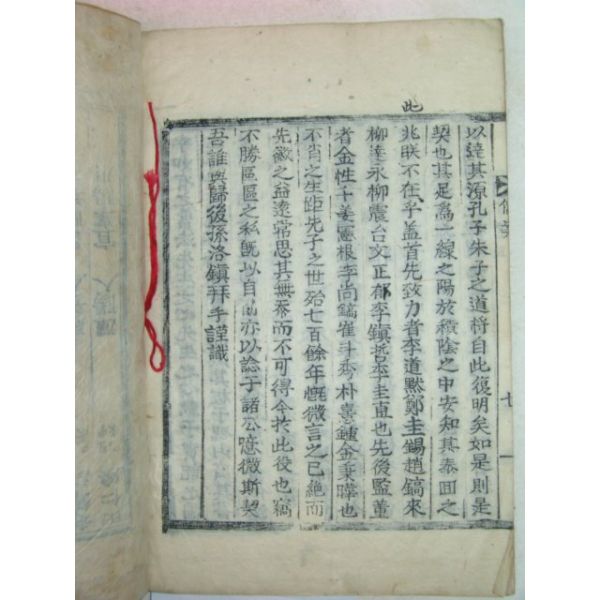 此
以達其源孔子朱子之道將自此復明矣如是則是
契也其足爲一線之陽於積陰之中安知其泰回之
兆朕不在乎盖首先致力者李道黙鄭圭錫趙鎬來
柳遠永柳震台文正郁李鎭哲李圭直也先後監董
者金性千姜憲根李尚鎬崔斗秀朴憙鍾金秉曄也
不肖之生距先子之世殆七百餘年慨微言之已絶而
先徽之益遠常思其無忝而不可得今於此役也竊
不勝區區之私旣以自 亦以諗于諸公噫微斯契
吾誰與歸後孫洛鎭拜手謹識
七